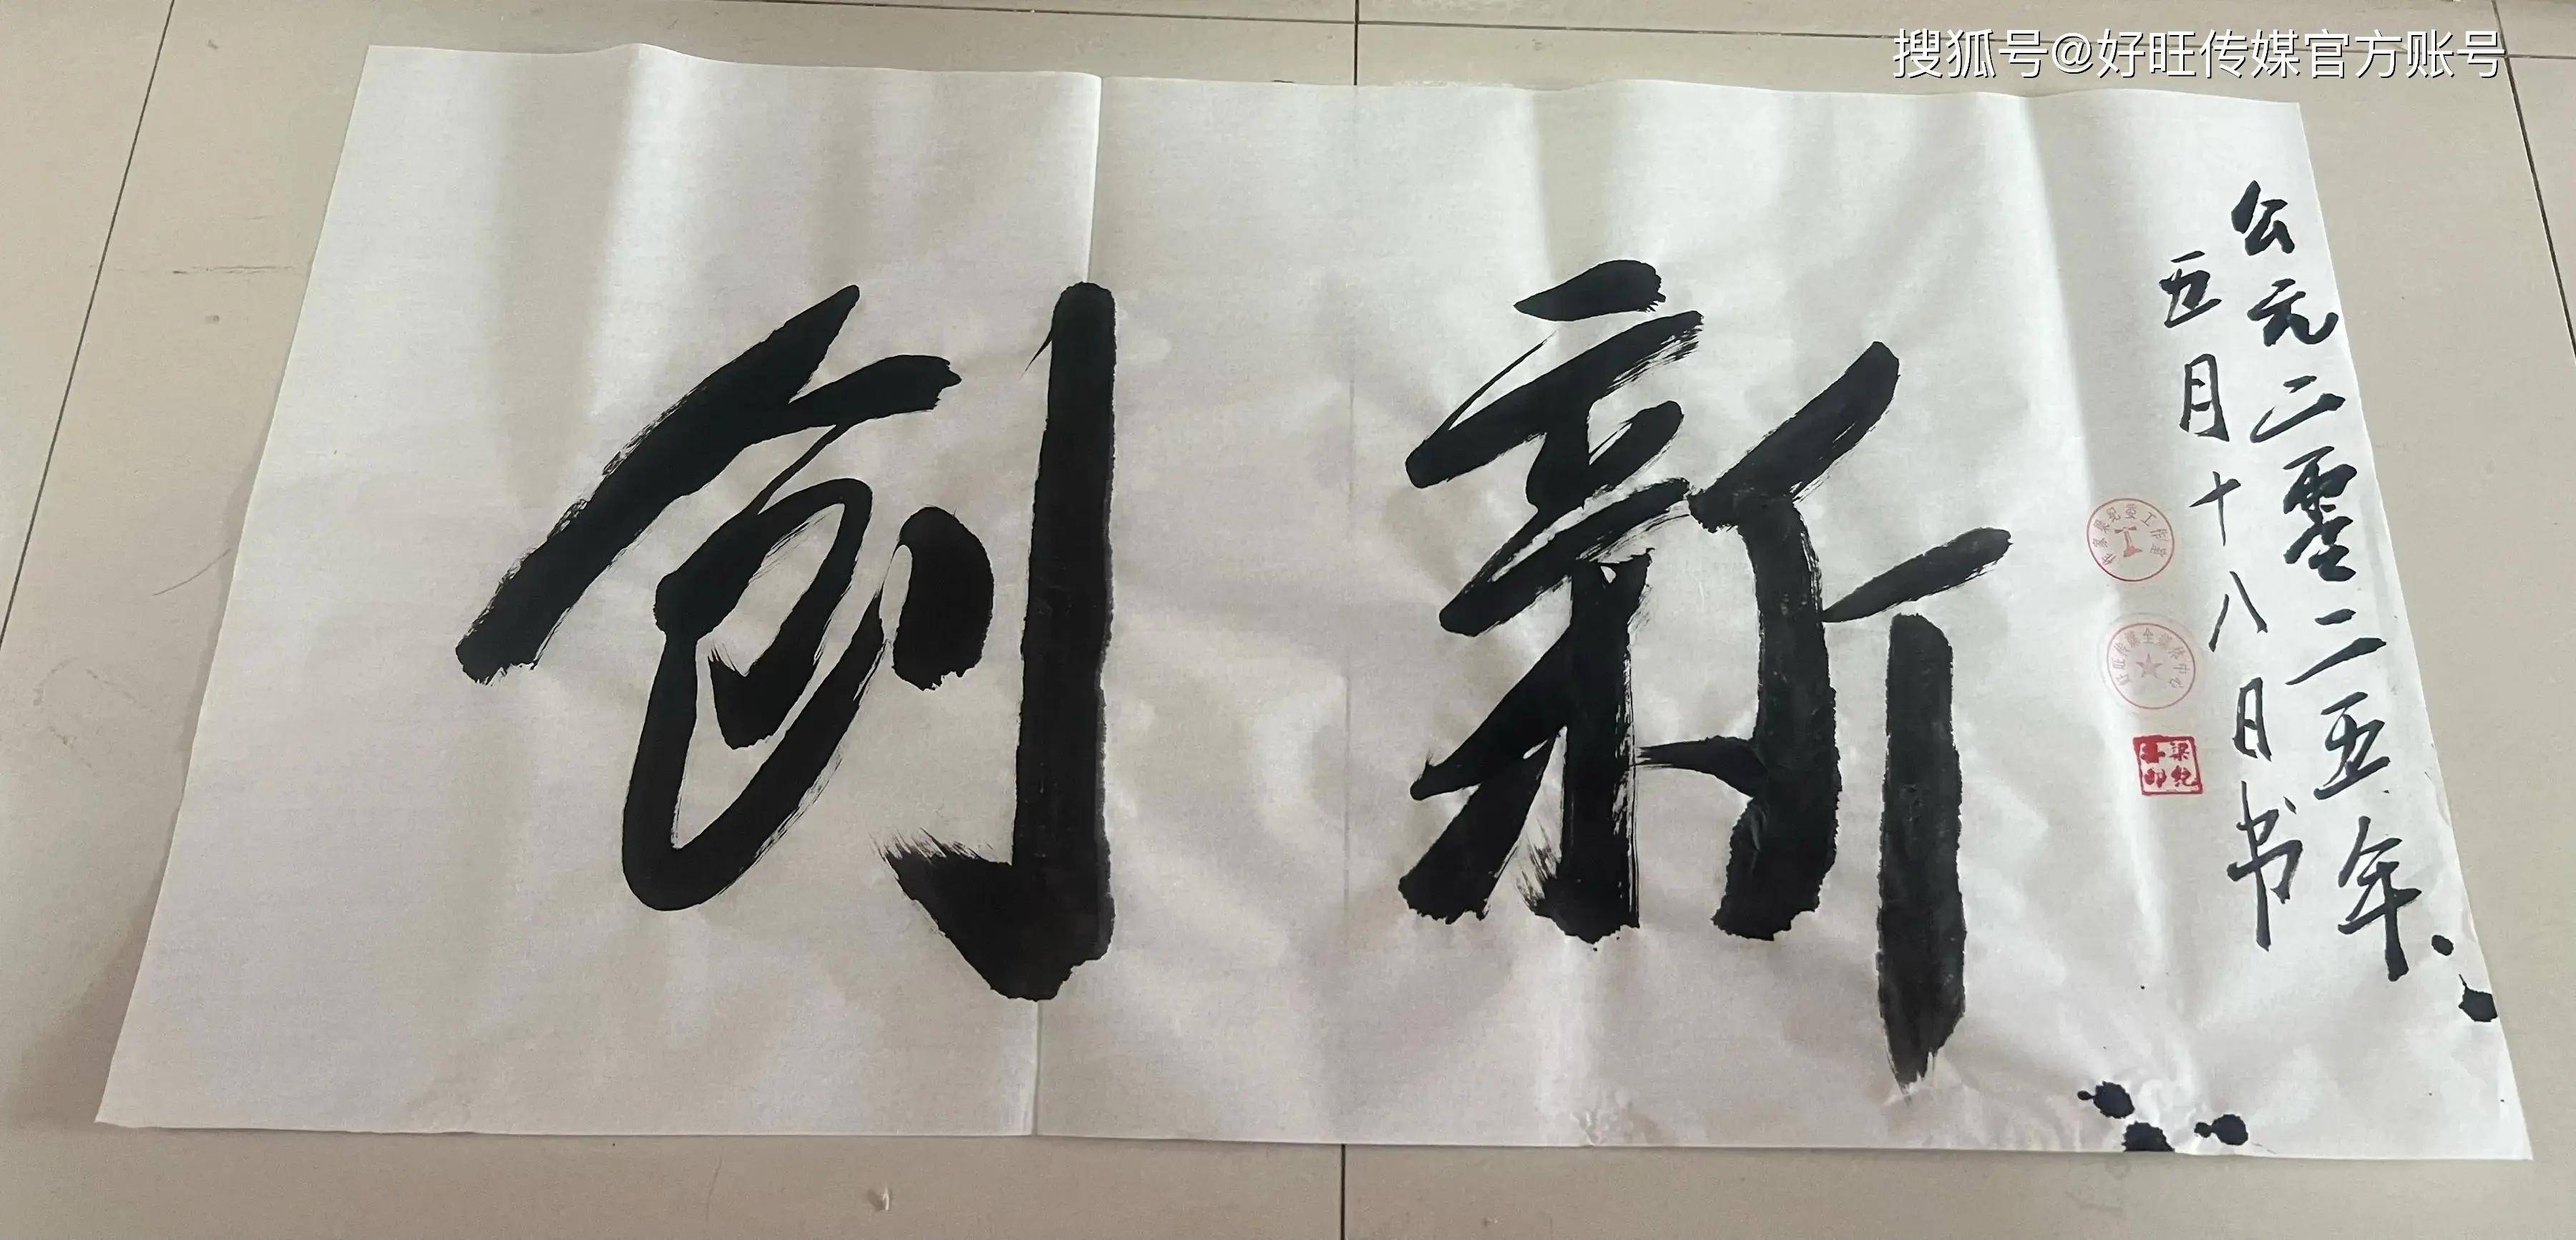 搜狐号@好旺传媒官方账号
创新
公元二零二五年
五月十八日书